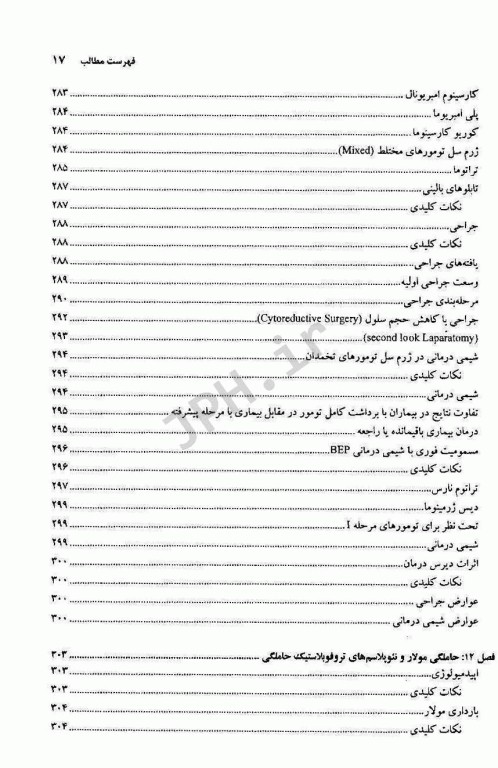 فهرست مطالب ۱۷
کارسینوم امبریونال ۲۸۳
پلی امبریوما ۲۸۴
کوریو کارسینوما ۲۸۴
ژرم سل تومورهای مختلط (Mixed) ۲۸۴
تراتوما ۲۸۵
تابلوهای بالینی ۲۸۷
نکات کلیدی ۲۸۷
جراحی ۲۸۸
نکات کلیدی ۲۸۸
یافته‌های جراحی ۲۸۸
وسعت جراحی اولیه ۲۸۹
مرحله‌بندی جراحی ۲۹۰
جراحی با کاهش حجم سلول (Cytoreductive Surgery) ۲۹۲
(second look Laparatomy) ۲۹۳
شیمی درمانی در ژرم سل تومورهای تخمدان ۲۹۴
نکات کلیدی ۲۹۴
شیمی درمانی ۲۹۴
تفاوت نتایج در بیماران با برداشت کامل تومور در مقابل بیماری با مرحله پیشرفته ۲۹۵
درمان بیماری باقیمانده یا راجعه ۲۹۵
مسمومیت فوری با شیمی درمانی BEP ۲۹۶
نکات کلیدی ۲۹۶
تراتوم نارس ۲۹۷
دیس ژرمینوما ۲۹۹
تحت نظر برای تومورهای مرحله I ۲۹۹
شیمی درمانی ۲۹۹
اثرات دیررس درمان ۳۰۰
نکات کلیدی ۳۰۰
عوارض جراحی ۳۰۰
عوارض شیمی درمانی ۳۰۰
فصل ۱۲: حاملگی مولار و نئوپلاسم‌های تروفوبلاستیک حاملگی ۳۰۳
اپیدمیولوژی ۳۰۳
نکات کلیدی ۳۰۳
بارداری مولار ۳۰۴
نکات کلیدی ۳۰۴
JPH.ir